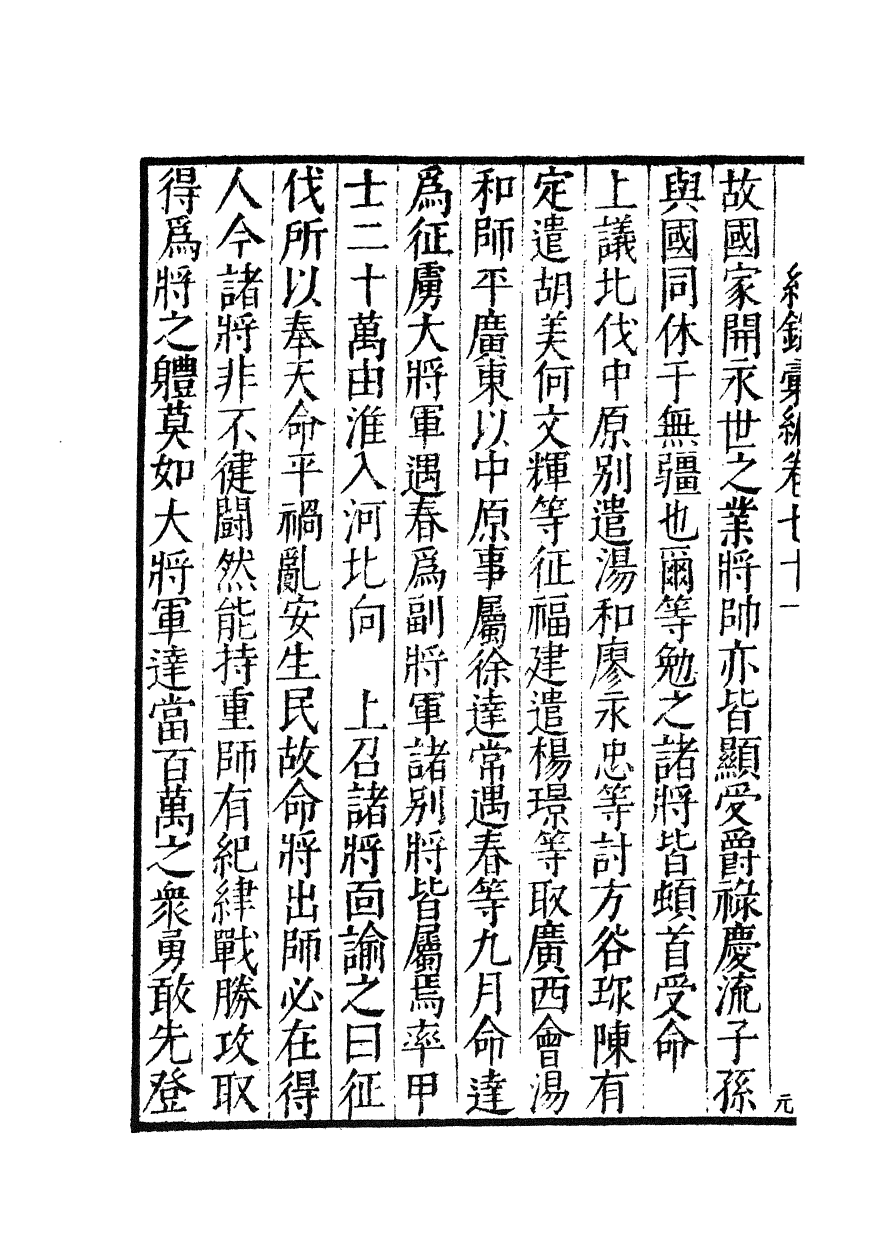 紀錄彙編卷七十一
元
故國家開永世之業將帥亦皆顯受爵祿慶流子孫
與國同休于無疆也爾等勉之諸將皆頓首受命
上議北伐中原別遣湯和廖永忠等討方谷珎陳有
定遣胡美何文輝等征福建遣楊璟等取廣西會湯
和師平廣東以中原事屬徐達常遇春等九月命達
爲征虜大將軍遇春爲副將軍諸別將皆屬焉率甲
士二十萬由淮入河北向　上召諸將面諭之曰征
伐所以奉天命平禍亂安生民故命將出師必在得
人今諸將非不健鬪然能持重師有紀律戰勝攻取
得爲將之體莫如大將軍達當百萬之衆勇敢先登